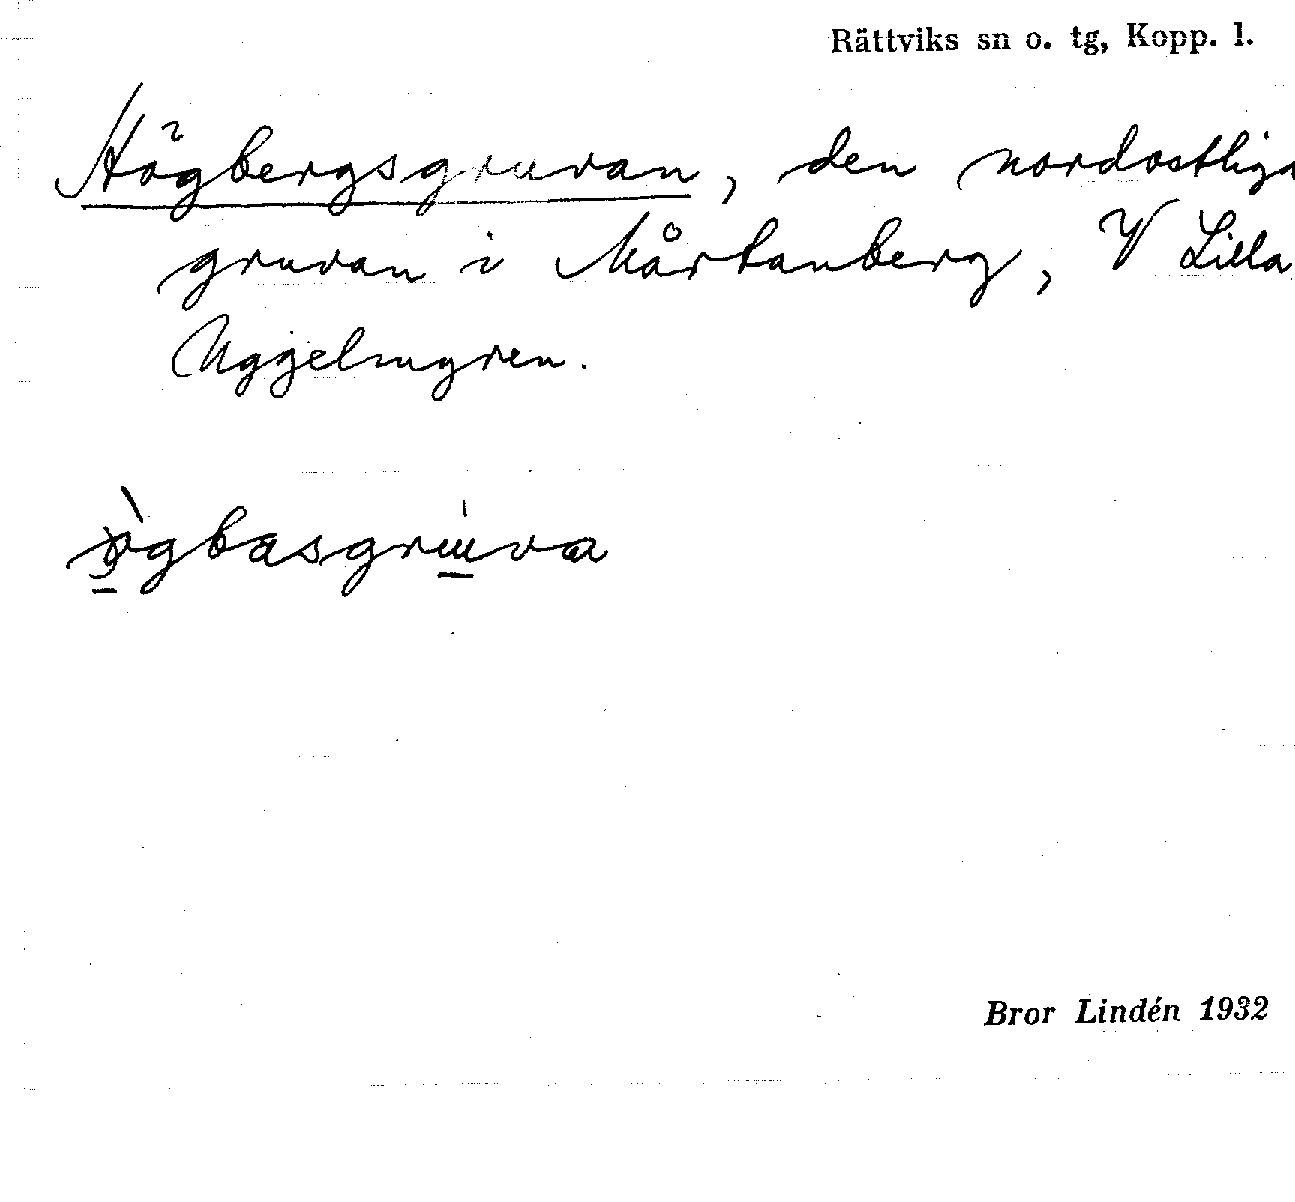 Rättviks sn o. tg, Kopp. l.
Högbergsgruvan, den nordostliga
gruvan i Mårtanberg, V Lilla
Uggelmyren.
Bror Lindén 1932